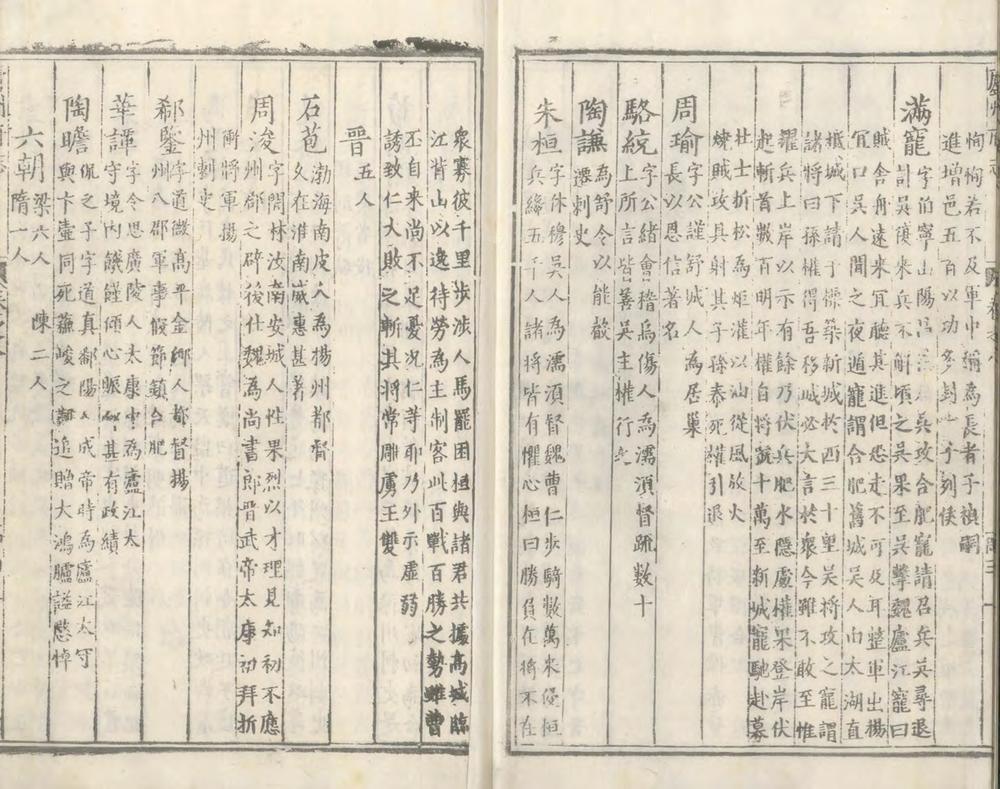 恂恂若不及軍中稱為長者子禎嗣
進增邑五百以功多封一子列侯
滿寵字伯寧山陽昌邑人吳攻合肥寵請召兵吳尋退
計吳復來兵不解頃之吳果至吳擊魏廬江寵曰
賊舍舟遠來宜聽其進但恐走不可及耳整軍出楊
宜口吳人聞之夜遁寵謂合肥舊城吳人由太湖直
抵城下請于
築新城於西三十里吳將攻之寵謂
諸將曰孫權得吾移城必大言於衆今雖不敢至惟
耀兵上岸以示有餘乃伏兵肥水隱處權果登岸伏
起斬首數百明年權自將號十萬至新城寵馳赴募
壯士折松為炬灌以油從風放火
煉賊攻具射其子孫泰死權引退
周瑜字公謹舒城人為居巢
長以恩信著名
駱統字公緒會稽烏傷人為濡湏督疏數十
上所言皆善吳主權行之
陶謙為舒令以能
遷刺史
朱桓字休穆吳人為濡湏督魏曹仁步騎數萬來侵桓
兵緣五千人諸將皆有懼心桓曰勝負在將不在
衆寡彼千里步涉人馬罷困桓與諸君共據高城臨
江背山以逸待勞為主制客此百戰百勝之勢雖曹
丕自來尚不足憂况仁等耶乃外示虛弱
誘致仁大敗之斬其將常雕虜王雙
晉五人
石苞渤海南皮人為楊州都督
久在淮南威惠甚著
周浚字開林汝南安城人性果烈以才理見知初不應
州郡之辟後仕魏為尚書郎晉武帝太康初拜折
衝將軍揚
州刺史
郗鑒字道徽高平金鄉人都督揚
州八郡軍事假節鎮合肥
華譚字令思廣陵人太康中為廬江太
守境内饑饉傾心賑
其有政績
陶瞻侃之子字道真鄱陽人成帝時為廬江太守
與卞壼同死蘇峻之難追贈大鴻臚謚愍悼
六朝梁六人 陳二人
隋一人